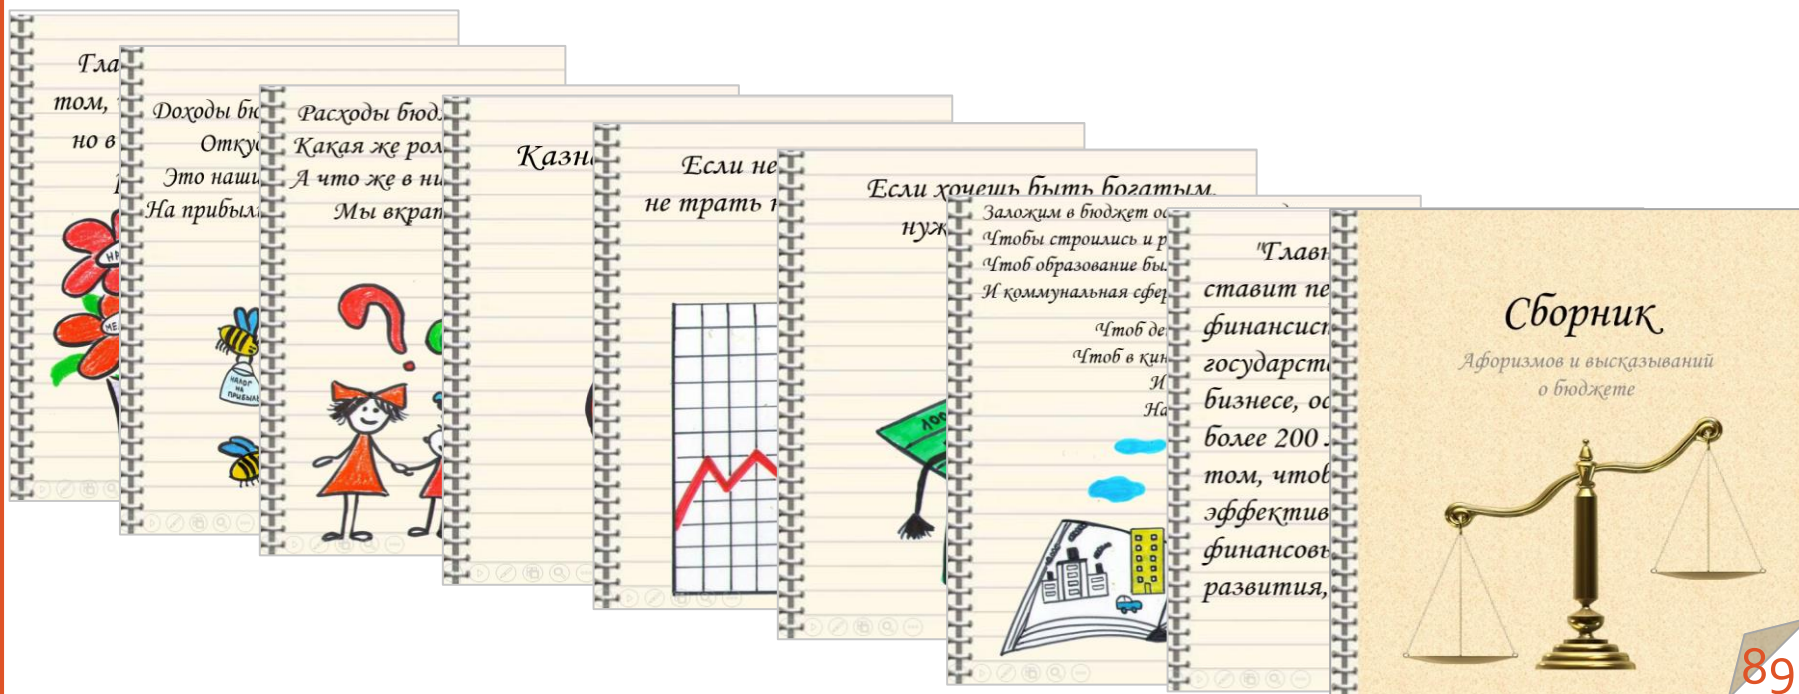 Гла
том,
но в
Доходы бю
Отку
Это наши
На прибыл
НАЛОГ
НА
ПРИБЫЛЬ
Расходы бюд
Какая же рол
А что же в ни
Мы вкрат
Казн
Если не
не трать
Если хочешь быть богатым,
нуж
Заложим в бюджет ос
Чтобы строились и р
Чтоб образование бы
И коммунальная сфер
Чтоб де
Чтоб в кин
И
На
"Главн
ставит пе
финансист
государст
бизнесе, ос
более 200
том, чтоб
эффектив
финансовы
развития,
Сборник
Афоризмов и высказываний
о бюджете
89